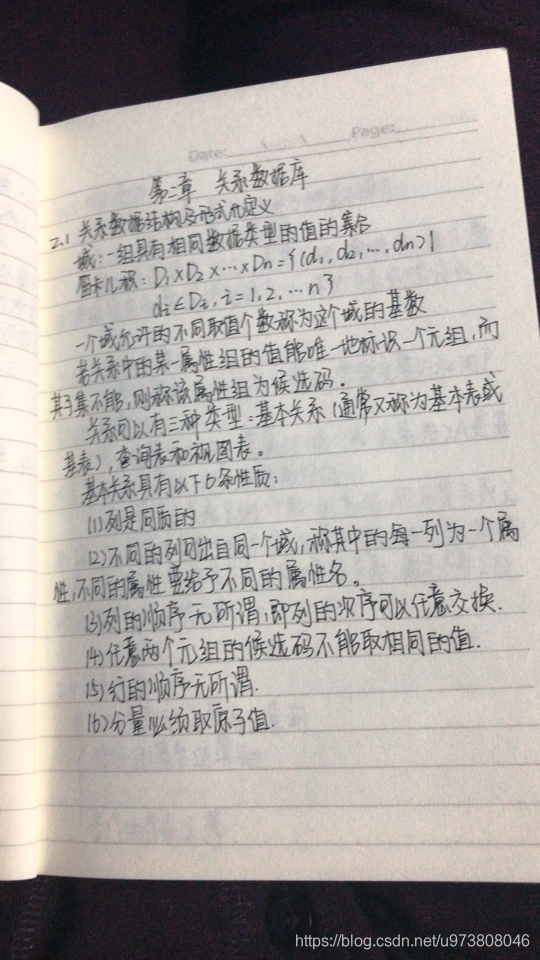 Date: Page:
第二章 关系数据库
2.1 关系数据结构及形式化定义
域:一组具有相同数据类型的值的集合
笛卡儿积:D₁×D₂×…×Dn={(d₁,d₂,…,dn)|
di∈Di,i=1,2,…n}
一个域允许的不同取值个数称为这个域的基数
若关系中的某一属性组的值能唯一地标识一个元组,而
其子集不能,则称该属性组为候选码.
关系可以有三种类型:基本关系(通常又称为基本表或
基表),查询表和视图表。
基本关系具有以下6条性质:
(1)列是同质的
(2)不同的列可出自同一个域,称其中的每一列为一个属
性,不同的属性要给予不同的属性名。
(3)列的顺序无所谓,即列的次序可以任意交换.
(4)任意两个元组的候选码不能取相同的值.
(5)行的顺序无所谓.
(6)分量必须取原子值.
https://blog.csdn.net/u973808046